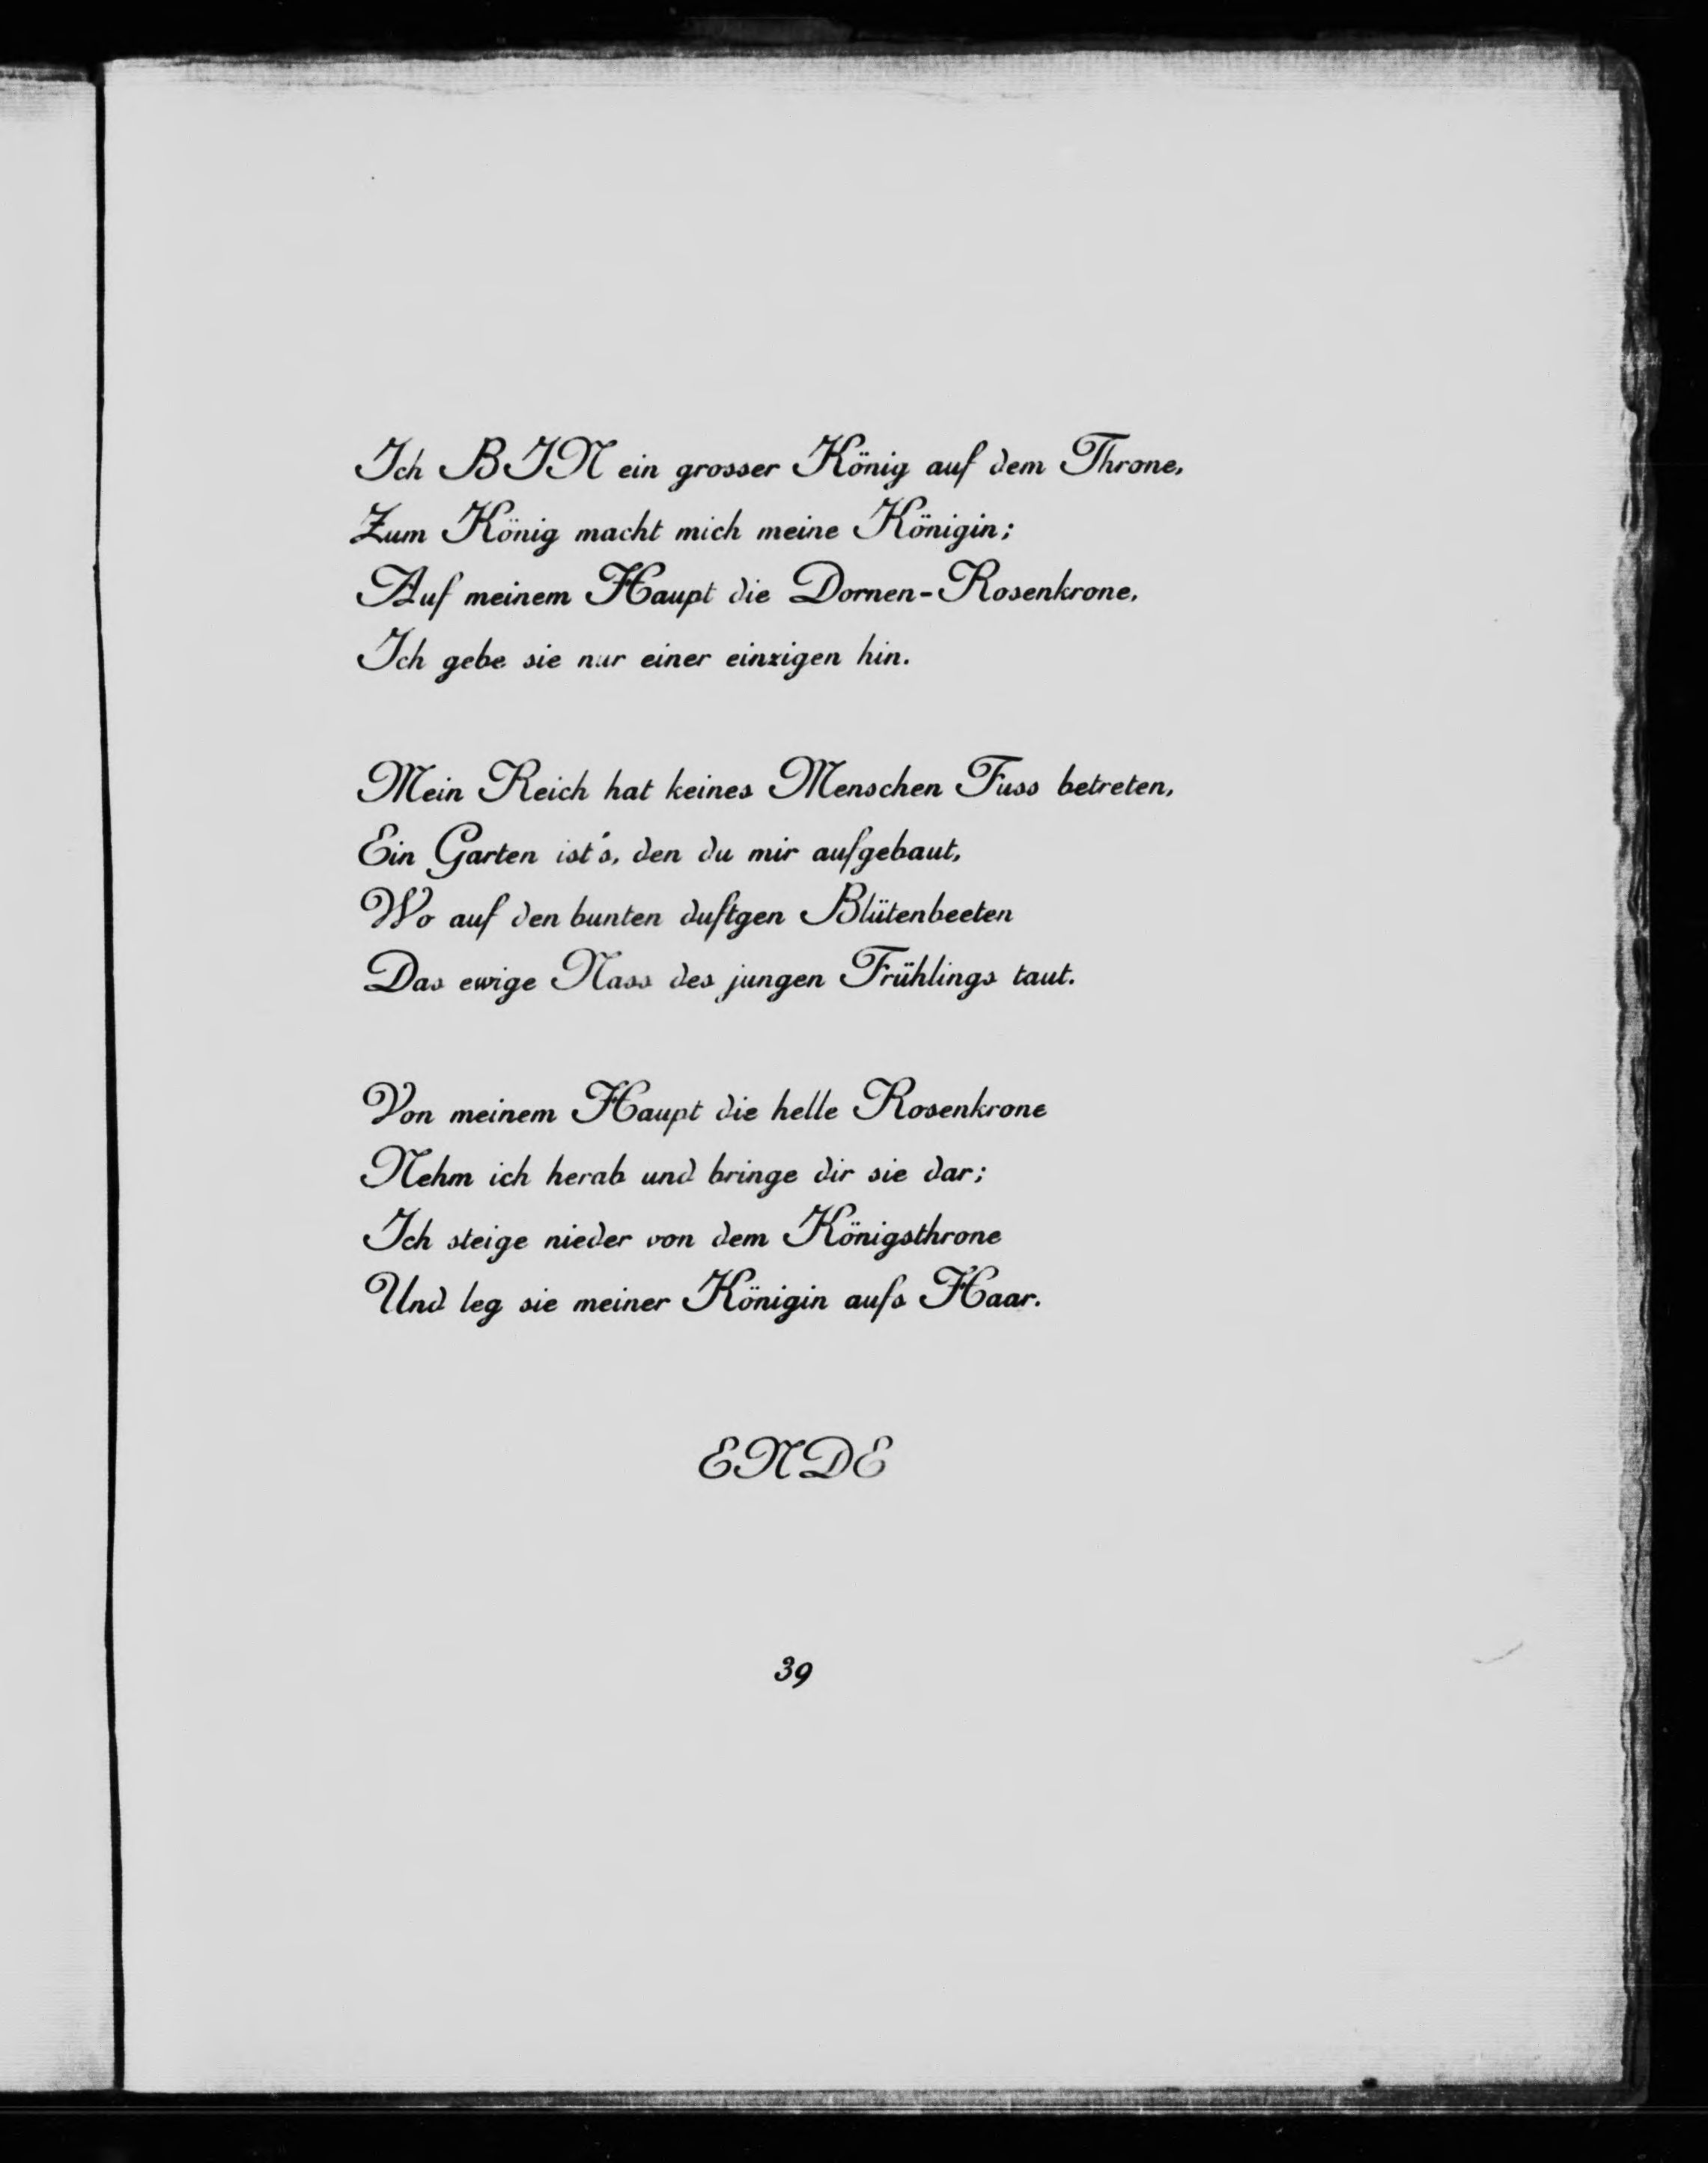 Ich BIN ein grosser König auf dem Throne,
Zum König macht mich meine Königin;
Auf meinem Haupt die Dornen-Rosenkrone,
Ich gebe sie nur einer einzigen hin.
Mein Reich hat keines Menschen Fuss betreten,
Ein Garten ist's, den du mir aufgebaut,
Wo auf den bunten duftgen Blütenbeeten
Das ewige Nass des jungen Frühlings taut.
Von meinem Haupt die helle Rosenkrone
Nehm ich herab und bringe dir sie dar;
Ich steige nieder von dem Königsthrone
Und leg sie meiner Königin aufs Haar.
ENDE
39